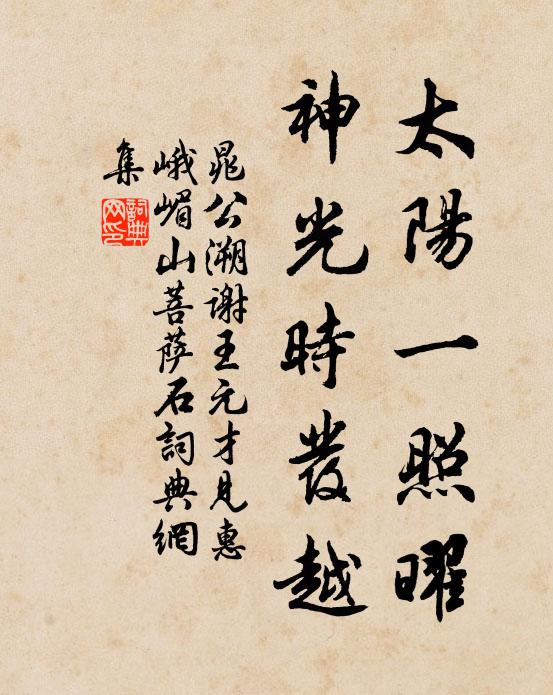 太陽一照曜
神光時發越
晁公溯謝王元才見惠
峨嵋山菩萨石詞典網
集
詞典
网印